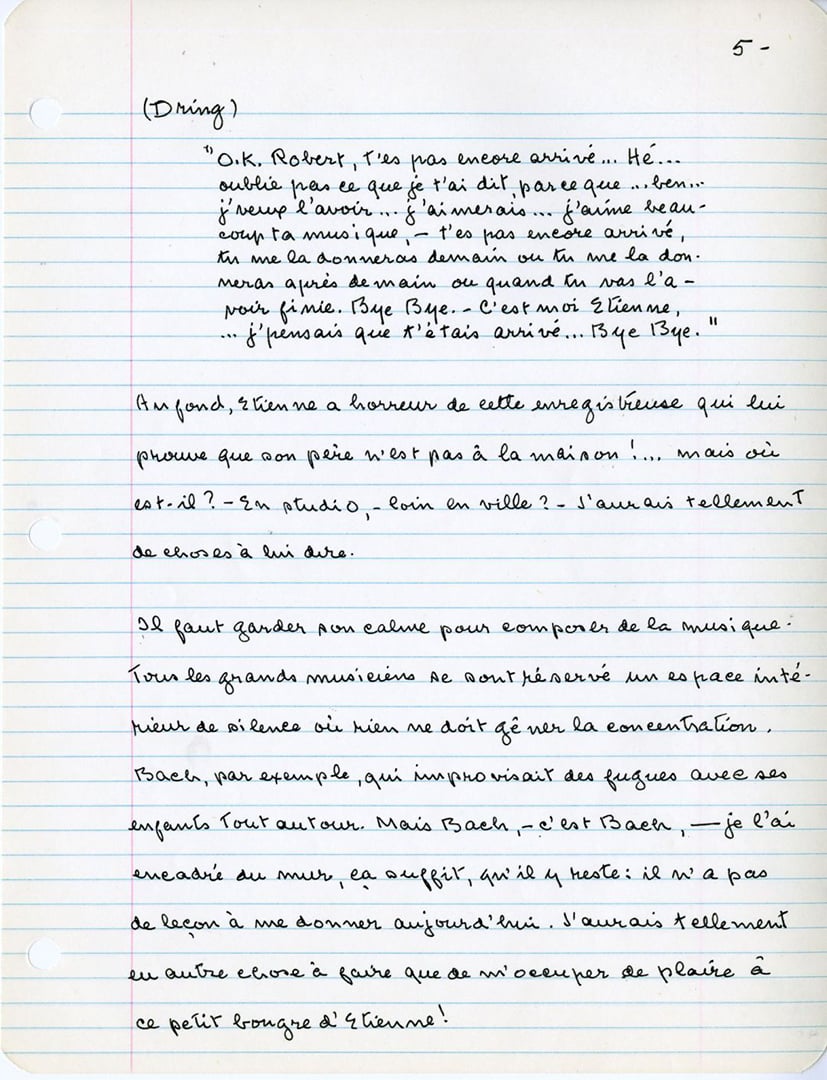 5-
(Dring)
"O.K. Robert, t'es pas encore arrivé... Hé...
oublie pas ce que je t'ai dit, parce que ... ben...
j'veux l'avoir... j'aimerais... j'aime beau-
coup ta musique, - t'es pas encore arrivé,
tu me la donneras demain ou tu me la don-
neras après demain ou quand tu vas l'a-
voir finie. Bye Bye. - C'est moi Etienne,
... j'pensais que t'étais arrivé... Bye Bye."
Au fond, Etienne a horreur de cette enregistreuse qui lui
prouve que son père n'est pas à la maison !... mais où
est-il ? - En studio, - loin en ville ? - J'aurais tellement
de choses à lui dire.
Il faut garder son calme pour composer de la musique.
Tous les grands musiciens se sont réservé un espace inté-
rieur de silence où rien ne doit gêner la concentration.
Bach, par exemple, qui improvisait des fugues avec ses
enfants tout autour. Mais Bach, - c'est Bach, — je l'ai
encadré au mur, ça suffit, qu'il y reste : il n'a pas
de leçon à me donner aujourd'hui. J'aurais tellement
eu autre chose à faire que de m'occuper de plaire à
ce petit bougre d'Etienne !